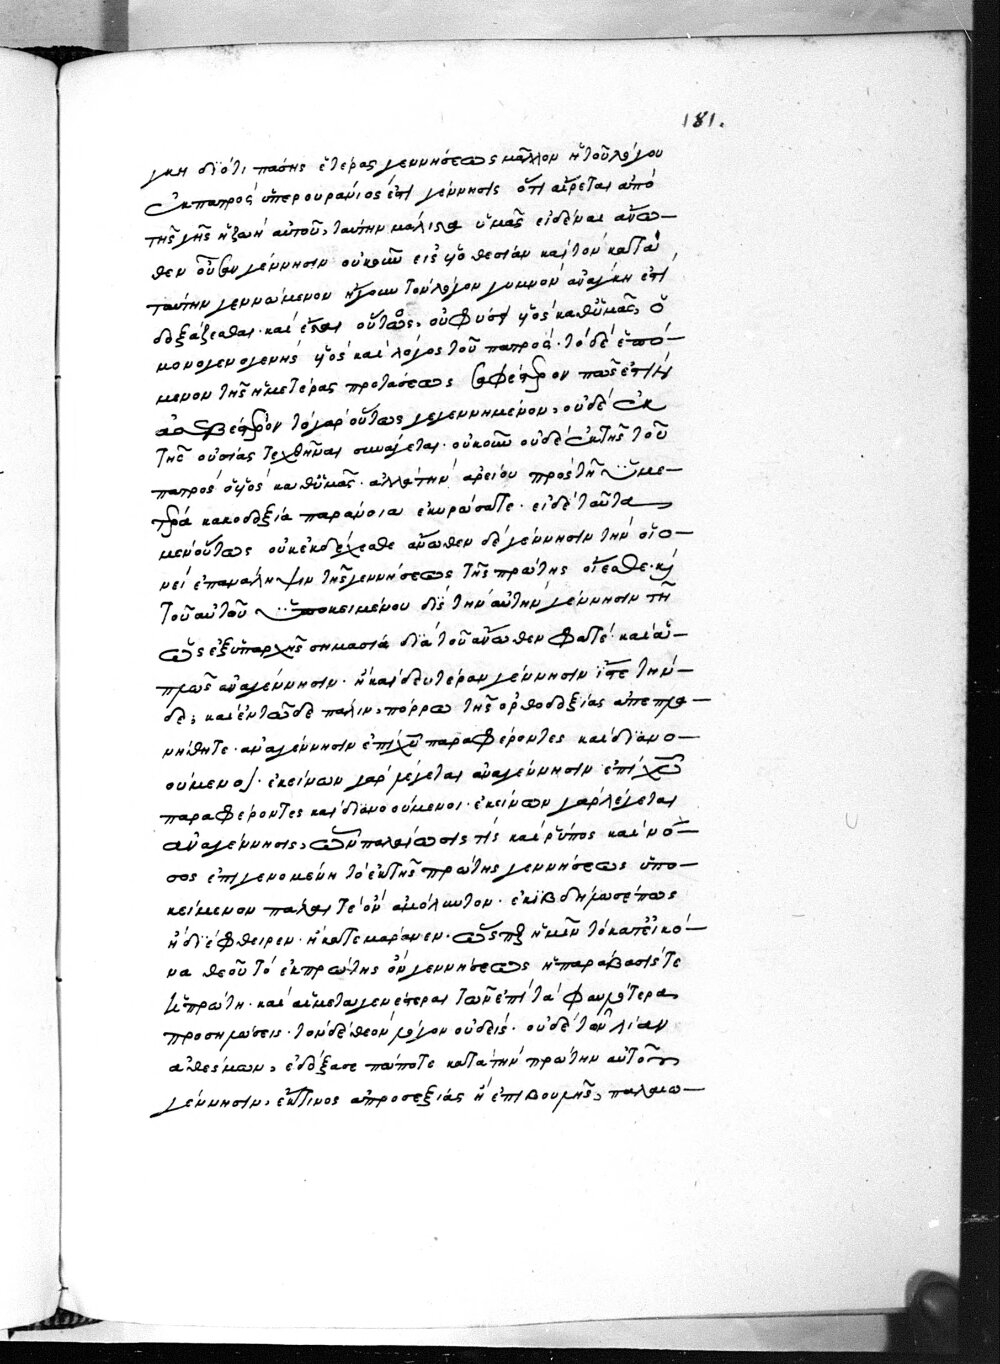 181.
γκη διότι πάσης ἑτέρας γεννήσεως μᾶλλον ἡ τοῦ λόγου
ἐκ πατρός ὑπερουράνιός ἐστι γέννησις ὅτι αἴρεται ἀπό
τῆς γῆς ἡ ζωή αὐτοῦ, ταύτην μάλιστα ὑμᾶς εἰδέναι ἄνω—
θεν οὖν γέννησιν οὐκοῦν εἰς υἱοθεσίαν καί τόν κατά
ταύτην γεννώμενον ἤγουν τόν λόγον γυμνόν ἀνάγκη ἐστί
δοξάζεσθαι· καί ἔσται οὕτως, οὐ φύσει υἱός καθ' ὑμᾶς, ὁ
μονογενογενής υἱός καί λόγος τοῦ πατρός· τό δέ ἑπό—
μενον τῆς ἡμετέρας προτάσεως πῶς ἐστι
ἀσεβέστερον τό γάρ οὕτως γεγεννημένον, οὐδέ ἐκ
τῆς οὐσίας τεχθῆναι συνάγεται· οὐκοῦν οὐδέ ἐκ τῆς τοῦ
πατρός ὁ υἱός καθ' ὑμᾶς· ἀλλά τήν ἀρείου πρός τῇ ὑμε—
τέρᾳ κακοδοξίᾳ παράνοιαν ἐκυρώσατε· εἰ δέ ταῦτα
μέν οὕτως οὐκ ἐκδέχεσθε ἄνωθεν δέ γέννησιν τήν οἱο—
νεί ἐπανάληψιν τῆς γεννήσεως τῆς πρώτης οἴεσθε· καί
τοῦ αὐτοῦ ὑποκειμένου δίς τήν αὐτήν γέννησιν τῇ
ὡς ἐξ ὑπαρχῆς σημασίᾳ διά τοῦ ἄνωθεν φατέ· καί αὖ—
πρωῒς ἀναγέννησιν· ἤ καί δευτέραν γέννησιν ἴστε τήν—
δε, καί ἐν τῷδε πάλιν, πόρρω τῆς ὀρθοδοξίας ἀπεπλα—
νήθητε· ἀναγέννησιν ἐπί χυ παραφέροντες καί διανο—
ούμενοι· ἐκείνων γάρ λέγεται ἀναγέννησιν ἐπί χω
παραφέροντες καί διανοούμενοι· ἐκείνων γάρ λέγεται
ἀναγέννησις, ὧν παλαίωσίς τίς καί ρύπος καί νό—
σος ἐπιγενομένη τό ἐκ τῆς πρώτης γεννήσεως ὑπο—
κείμενον πάλαι τέ ὄν ἀμόλυντον· ἐκιβδήλωσέ πως
ἤ διέφθειρεν· ἤ κατεμάρανεν· ὥσπερ ἡμῖν τό κατ' εἰκό—
να θεοῦ τό ἐκ πρώτης ὄν γεννήσεως ἡ παράβασίς τε
ἡ πρώτη· καί αἱ μεταγενέστεραι τῶν ἐπί τά φαυλότερα
προσηλώσεις· τόν δέ θεόν λόγον οὐδείς· οὐδέ τῶν λίαν
ἀθέσμων, ἐδόξασε πώποτε κατά τήν πρώτην αὐτοῦ
γέννησιν, ἔκ τινος ἀπροσεξίας ἤ ἐπιβουλῆς, παλαιω—